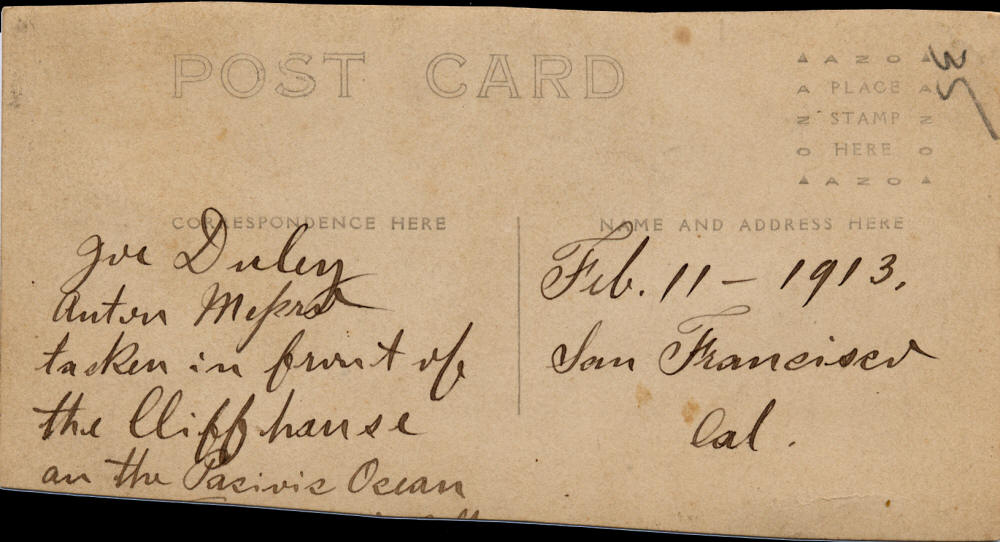 POST CARD
▲ A Z O ▲
A PLACE A
Z STAMP Z
O HERE O
▲ A Z O ▲
CORRESPONDENCE HERE
Joe Duley
Anton
tacken in front of
the Cliff hause
an the Pasivic Ocean
NAME AND ADDRESS HERE
Feb. 11 – 1913.
San Francisco
Cal.